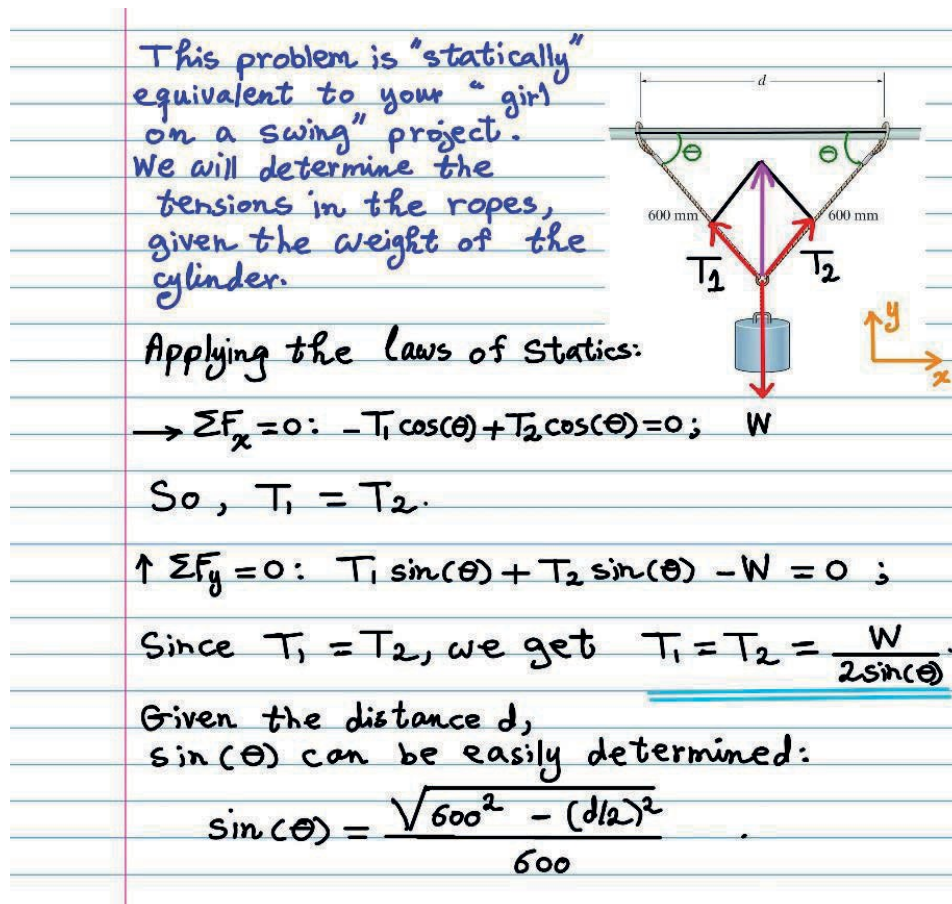 This problem is "statically"
equivalent to your "girl
on a swing" project.
We will determine the
tensions in the ropes,
given the weight of the
cylinder.
d
θ θ
600 mm 600 mm
T1 T2
y
x
W
Applying the laws of statics:
→ ΣFx = 0: -T1 cos(θ) + T2 cos(θ) = 0;
So, T1 = T2.
↑ ΣFy = 0: T1 sin(θ) + T2 sin(θ) - W = 0 ;
Since T1 = T2, we get T1 = T2 = W / 2sin(θ).
Given the distance d,
sin(θ) can be easily determined:
sin(θ) = √(600² - (d/2)²) / 600 .